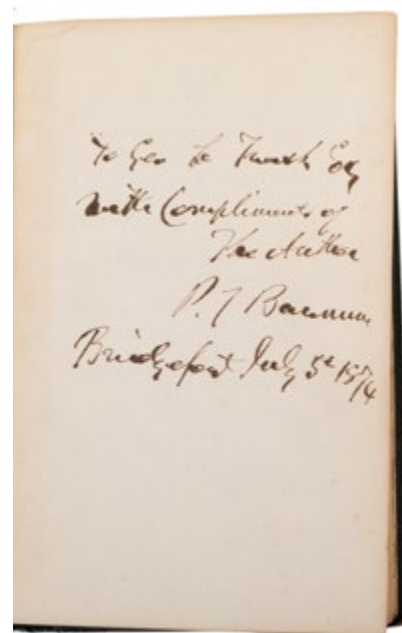 To Geo
with Compliments of
The Author
P. T. Barnum
Bridgeport July 5th 1874